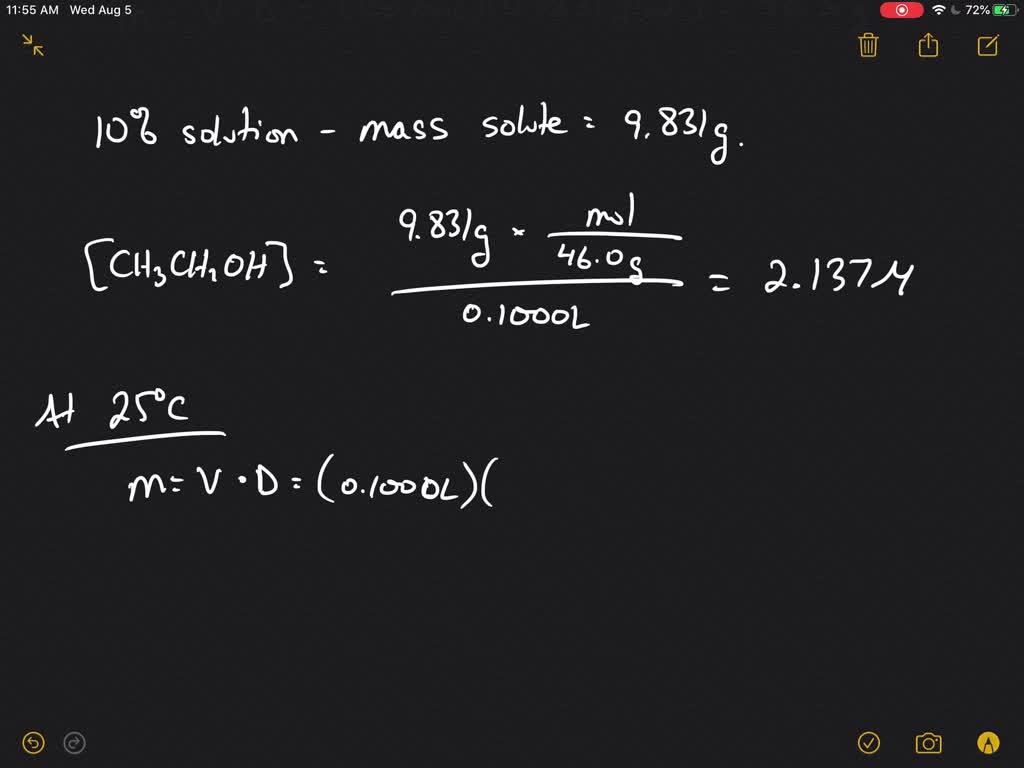 11:55 AM Wed Aug 5 72%
10% solution - mass solute = 9.831g.
[CH₃CH₂OH] = (9.831g × mol/46.0g)/0.1000L = 2.137M
At 25°C
m = V · D = (0.1000L)(